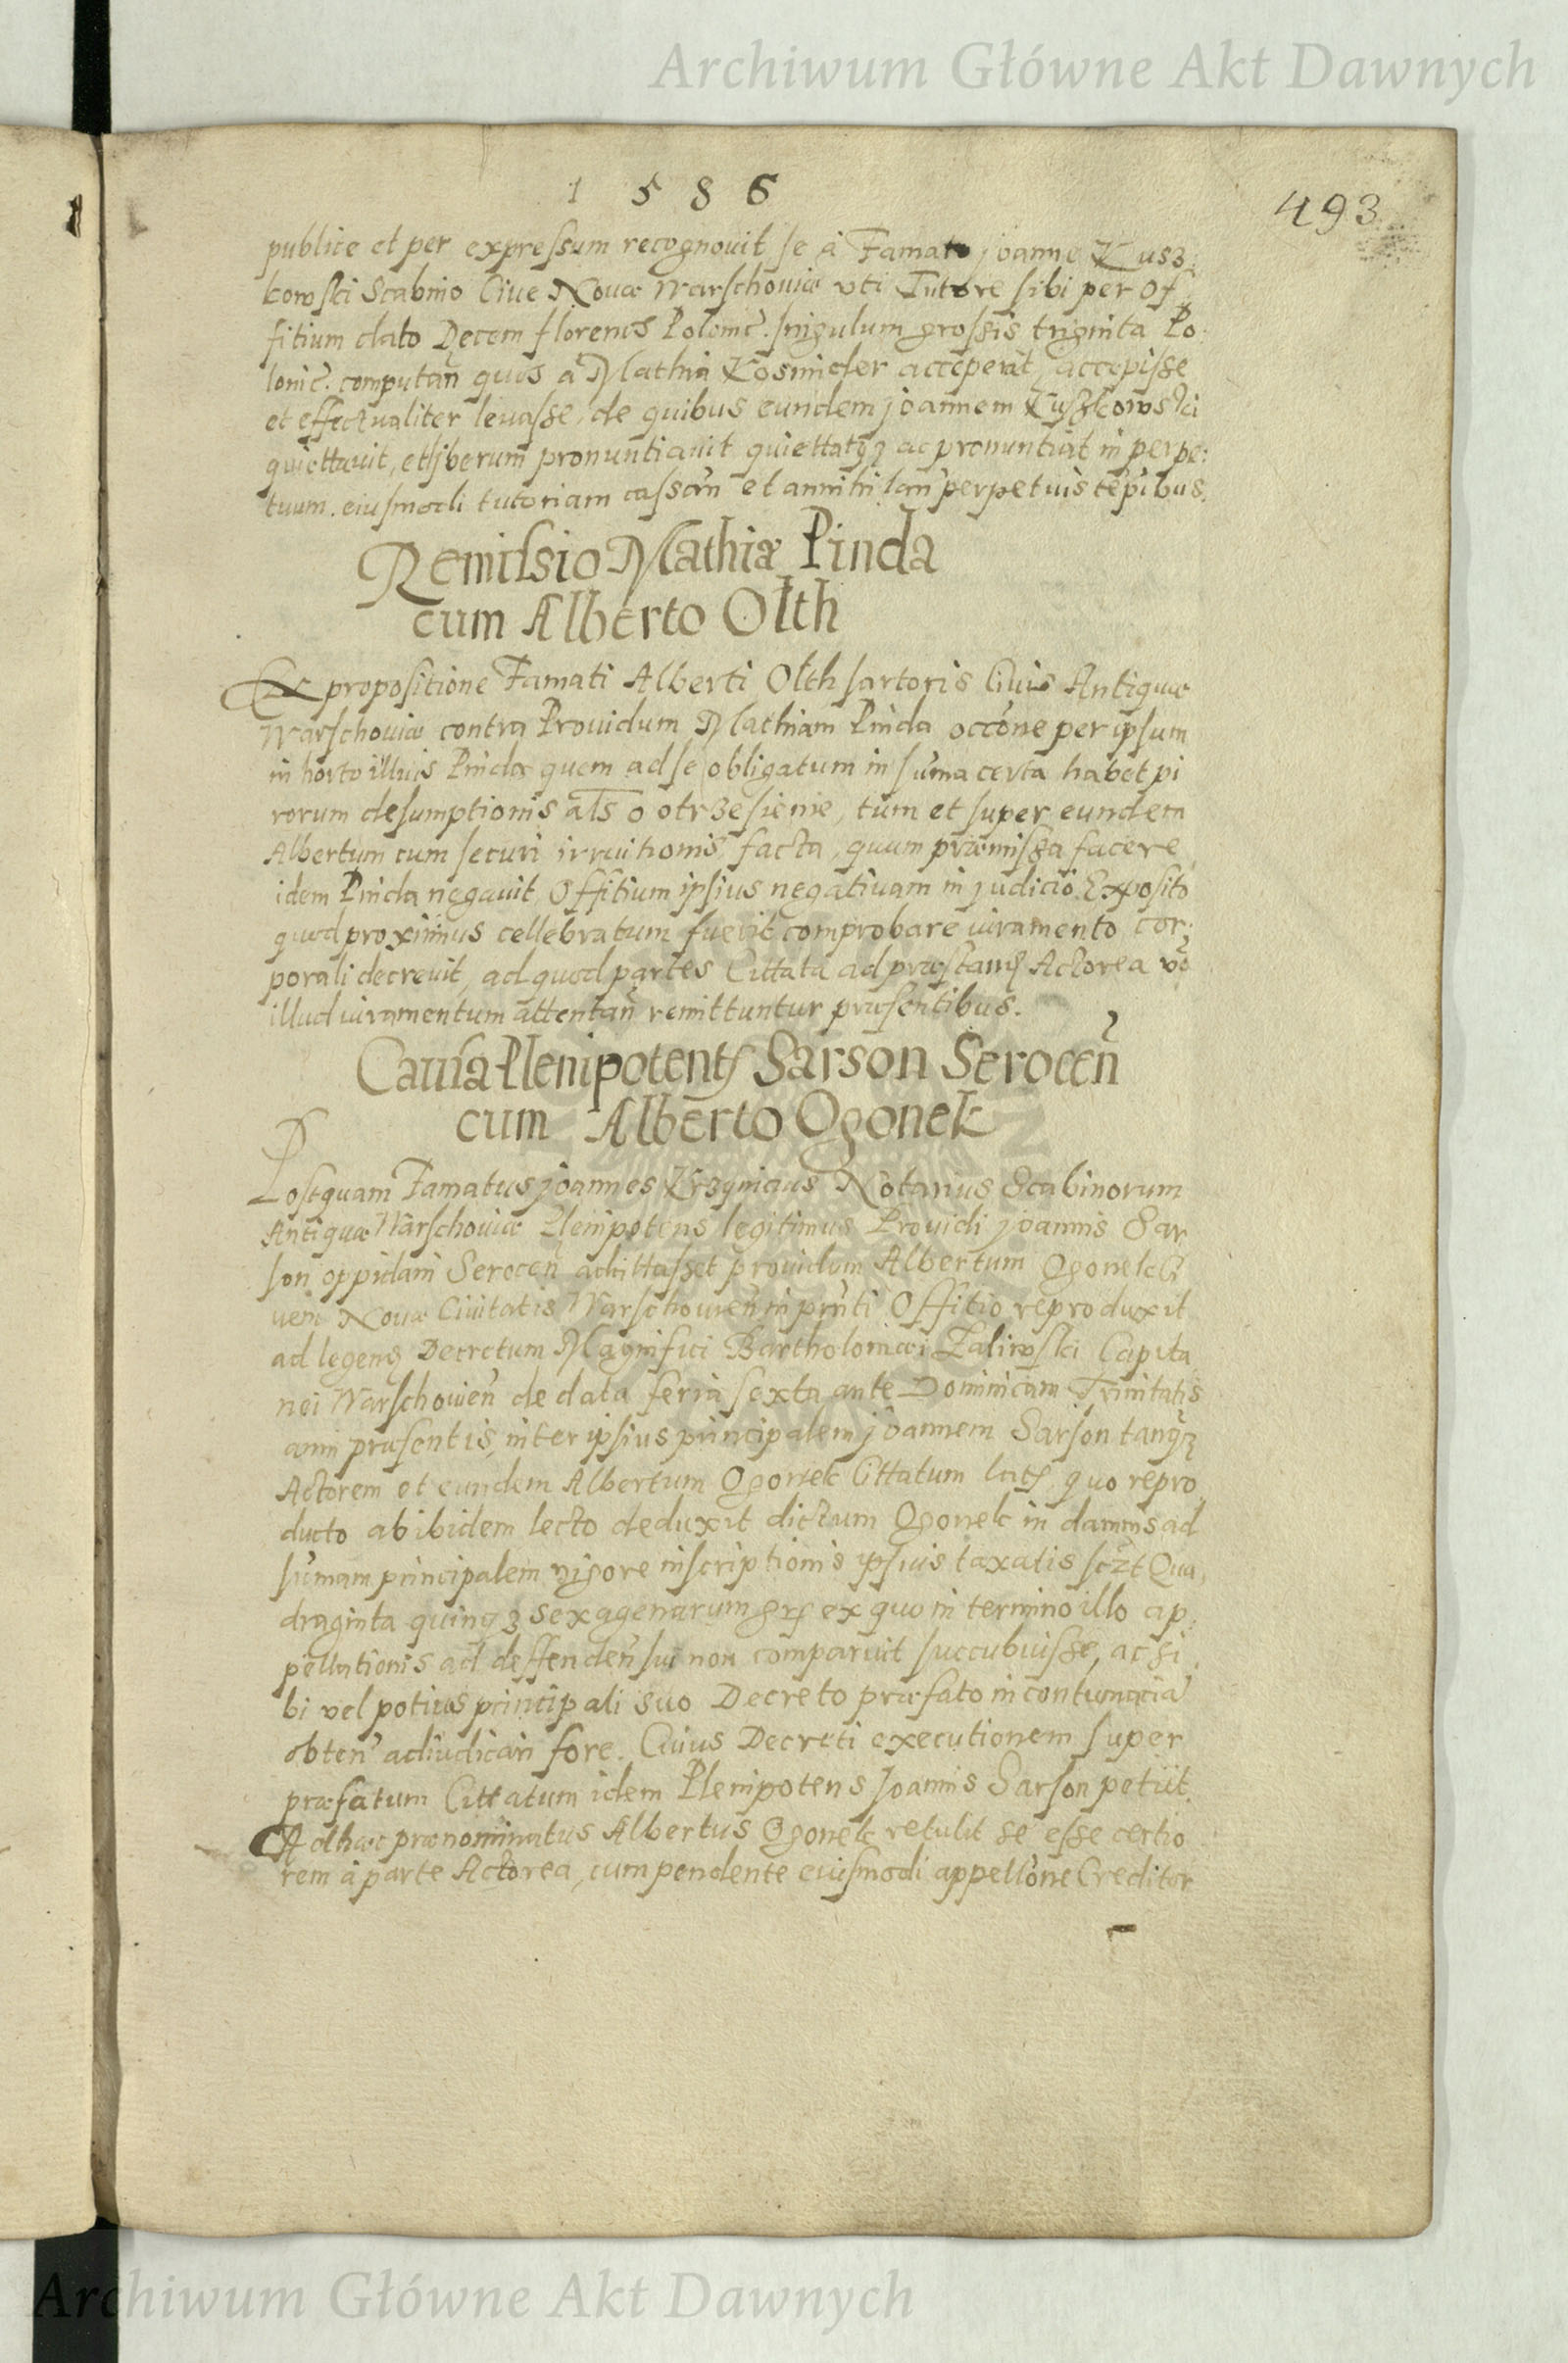 Archiwum Główne Akt Dawnych
1 5 8 6
493
publice et per expressum recognovit se à Famato joanne Kusz:
kowski Scabino Cive Novæ Warschoviæ uti Tutore sibi per Of
fitium dato Decem florenos Polonic. singulum grossis triginta Po:
lonic. computan̄ quos a Mathia Kosmider acceperat, accepisse
et effectualiter levasse, de quibus eundem joannem Kuszkowski
quiettavit, et liberum pronuntiavit quiettatqꝫ ac pronuntiat in perpe:
tuum. eiusmodi tutoriam cassan̄ et annihilan̄ perpetuis tēpibus.
Remissio Mathiæ Pinda
cum Alberto Olth
Ex propositione Famati Alberti Olth sartoris Civis Antiquæ
Warschoviæ contra Providum Mathiam Pinda occōne per ipsum
in horto illius Pinda quem ad se obligatum in sūma certa habet pi
rorum desumptionis als o otrzesienie, tum et super eundem
Albertum cum securi irruitionis facta, quum præmissa facere
idem Pinda negavit, Offitium ipsius negativam in judicio Exposito
quod proximus cellebratum fuerit comprobare iuramento cor:
porali decrevit, ad quod partes Cittata ad præstan̄ Actorea vō
illud iuramentum attentan̄ remittuntur præsentibus.
Causa Plenipotent̄ Sarson Serocen̄
cum Alberto Ogonek
Postquam Famatus joannes Krzynicius Notarius Scabinorum
Antiquæ Warschoviæ Plenipotens legitimus Providi joannis Sar
son oppidani Serocen̄ adcittasset providum Albertum Ogonek Ci
vem Novæ Civitatis Warschovien̄ in prn̄ti Offitio reproduxit
ad legen̄ Decretum Magnifici Bartholomæi Zaliwski Capita
nei Warschovien̄ de data feria sexta ante Dominicam Trinitatis
anni præsentis, inter ipsius principalem joannem Sarson tanqꝫ
Actorem et eundem Albertum Ogonek Cittatum lat̄ quo repro
ducto ab ibidem lecto deduxit dictum Ogonek in damnis ad
sūmam principalem vigore inscriptionis ipsius taxatis sczt Qua,
draginta quinqꝫ sexagenarum gr̄ ex quo in termino illo ap:
pellationis ad deffenden̄ sui non comparuit succubuisse, ac si
bi vel potius principali suo Decreto præfato in contumacia
obten̄ adiudican̄ fore. Cuius Decreti executionem super
præfatum Cittatum idem Plenipotens Joannis Sarson petiit.
Ad hæc prænominatus Albertus Ogonek retulit se esse certio
rem à parte Actorea, cum pendente eiusmodi appellōne Creditor
Archiwum Główne Akt Dawnych